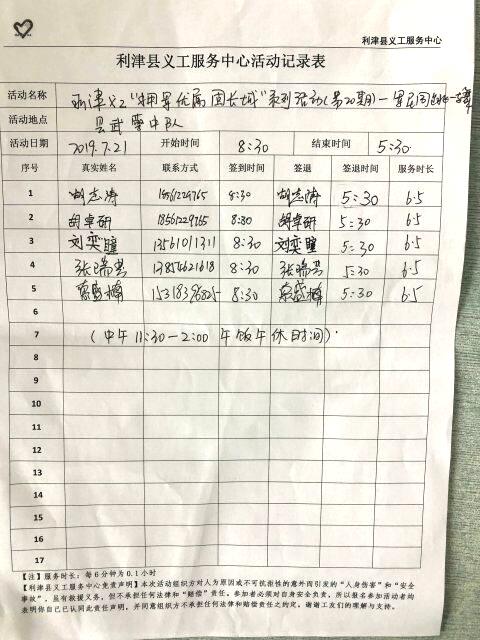 利津县义工服务中心
利津县义工服务中心活动记录表
活动名称 利津义工"拥军优属 固长城"系列活动(第20期)—军民同
活动地点 县武警中队
活动日期 2019.7.21 开始时间 8:30 结束时间 5:30
序号 真实姓名 联系方式 签到时间 签退 签退时间 服务时长
1 胡志涛 8:30 胡志涛 5:30 6.5
2 胡卓研 18561229765 8:30 胡卓研 5:30 6.5
3 刘奕瞳 13561011311 8:30 刘奕瞳 5:30 6.5
4 张瑞芸 13854621618 8:30 张瑞芸 5:30 6.5
5 8:30 5:30 6.5
6
7 (中午11:30—2:00 午饭午休时间)
8
9
10
11
12
13
14
15
16
17
【注】服务时长:每6分钟为0.1小时
【利津县义工服务中心免责声明】本次活动组织方对人为原因或不可抗拒性的意外而引发的"人身伤害"和"安全
事故",虽有救援义务,但不承担任何法律和"赔偿"责任。参加者必须对自身安全负责,所以报名参加活动者均
表明你自己已认同此责任声明,并同意组织方不承担任何法律和赔偿责任之约定。谢谢工友们的理解与支持。